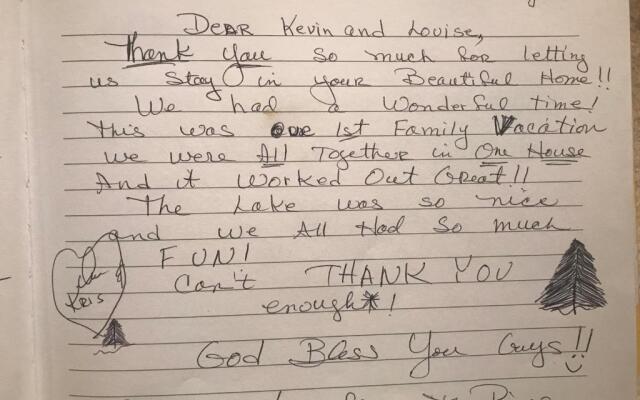 Dear Kevin and Louise,
Thank you so much for letting
us Stay in your Beautiful Home!!
We had a Wonderful time!
This was our 1st Family Vacation
we were All Together in One House
And it Worked Out Great!!
The Lake was so nice
and we All Had So much
FUN!
Can't THANK YOU
enough!
Kris
God Bless You Guys!!